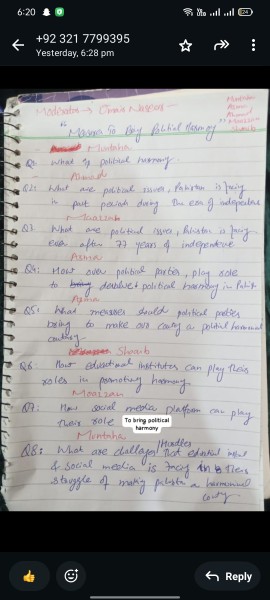 6:20
24
+92 321 7799395
Yesterday, 6:28 pm
Moderator →
Muntaha
Asma
Ahmad
Moazzam
Shoaib
"Measures To Bring Political Harmony"
Muntaha
Q1: What is political harmony.
Ahmad
Q2: What are political issues, Pakistan is facing
in past periods during the era of independence
Moazzam
Q3. What are political issues, Pakistan is facing
even after 77 years of independence
Asma
Q4: How over political parties, play role
to develop political harmony in Pakist
Asma
Q5: What measures should political parties
bring to make our country a political harmonial
country.
Shoaib
Q6: How educational institutes can play their
roles in promoting harmony.
Moazzam
Q7: How social media platform can play
their role To bring political harmony
Muntaha
Hurdles
Q8: What are challenges that
& social media is facing in their
struggle of making pakistan a harmonial
county
Reply